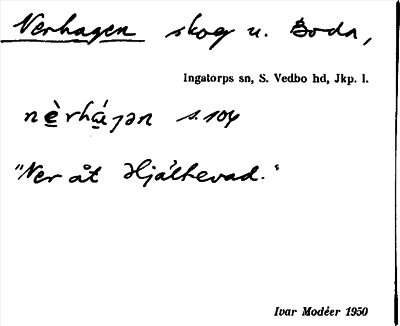 Nerhagen skog u. Boda,
Ingatorps sn, S. Vedbo hd, Jkp. l.
nè̱rhá̱gən s. 104
"Ner åt Hjältevad."
Ivar Modéer 1950